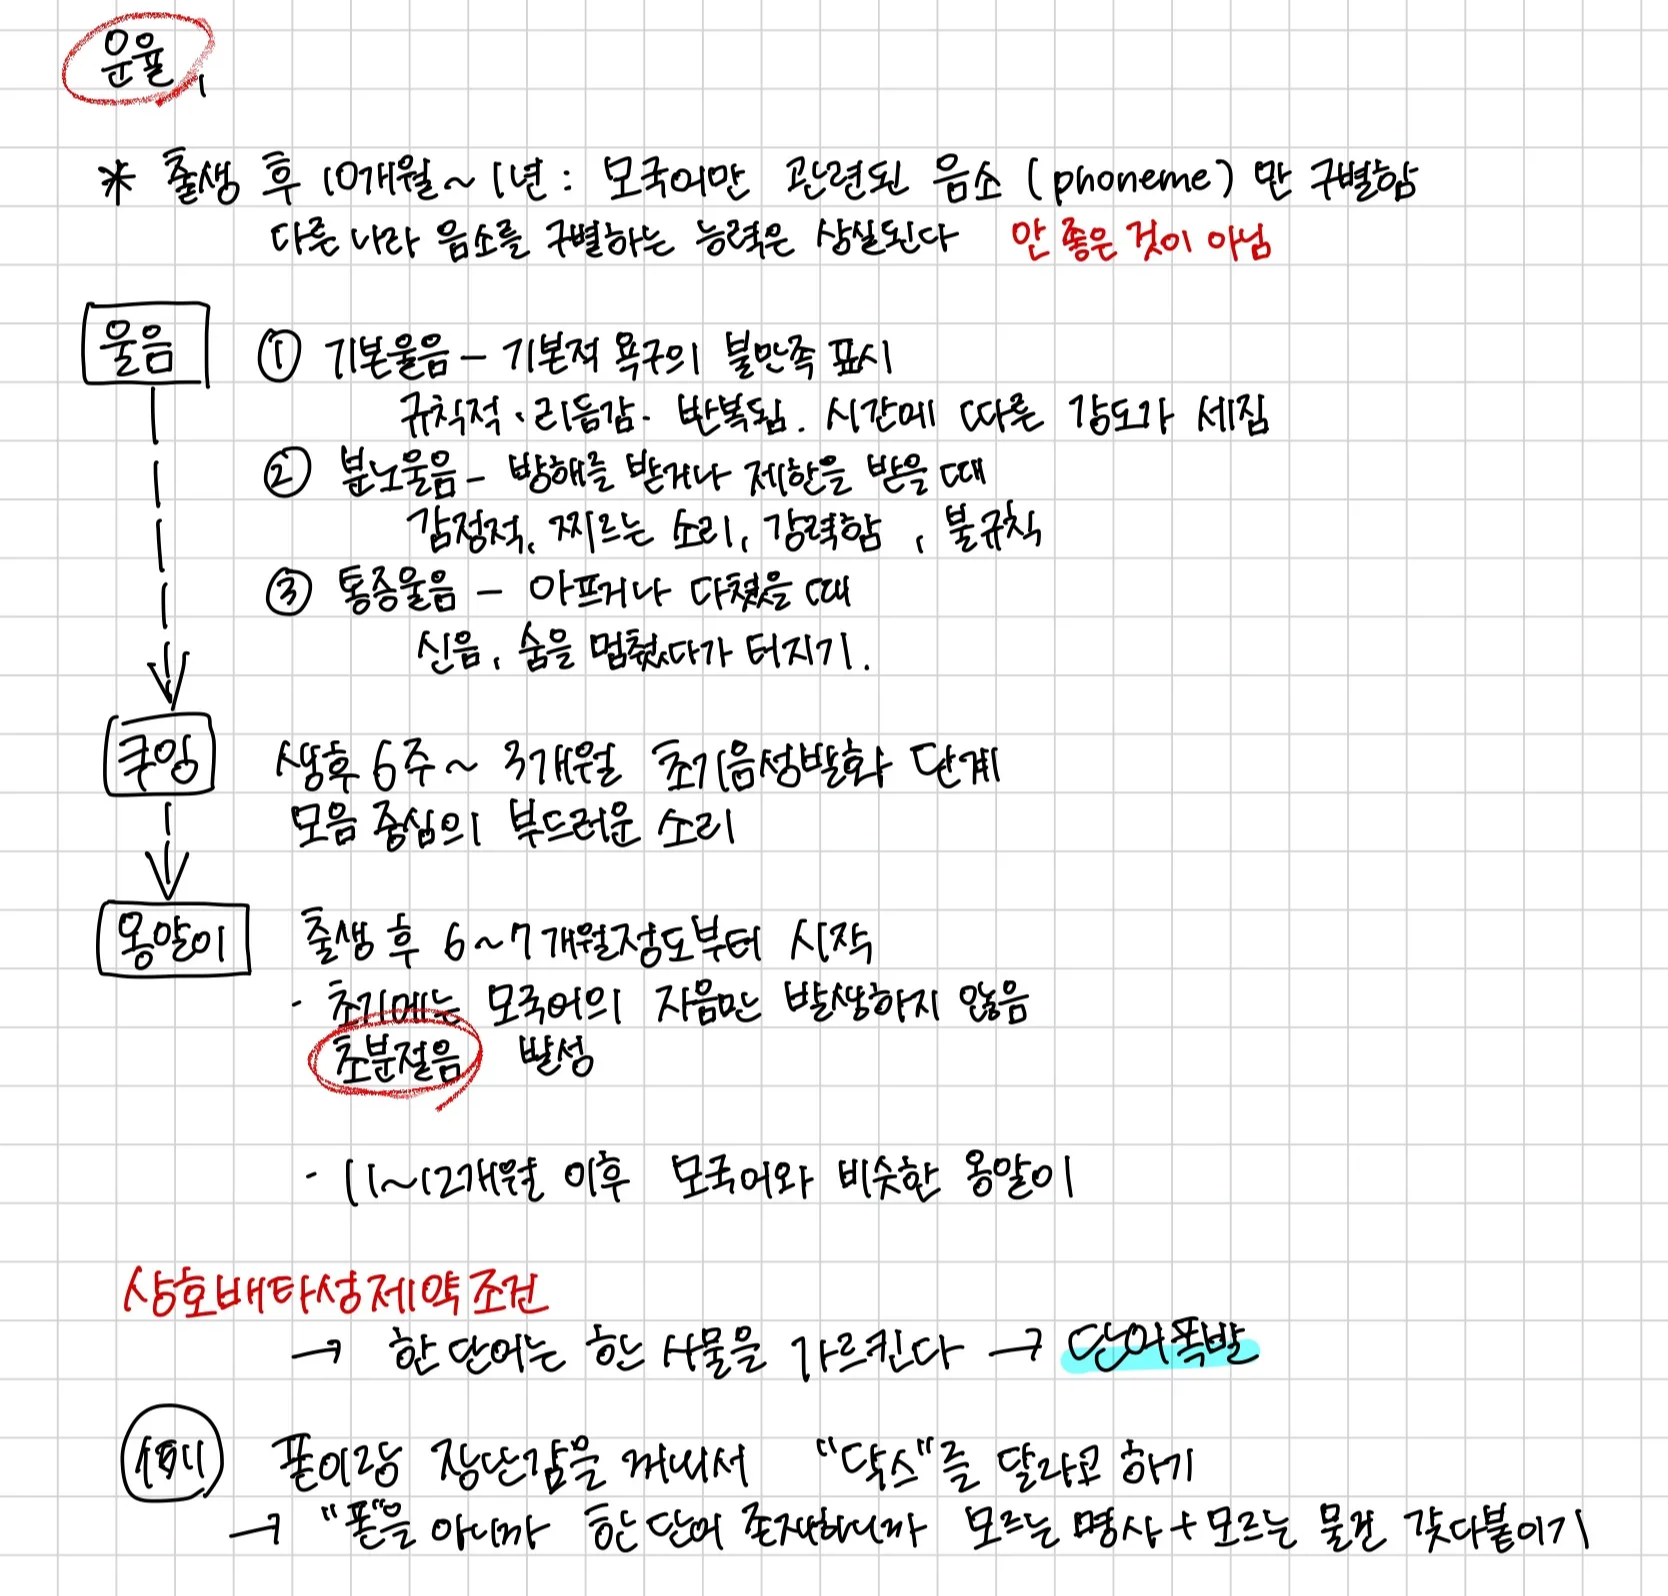 운율,
* 출생 후 10개월~1년 : 모국어만 관련된 음소 (phoneme) 만 구별함
다른나라 음소를 구별하는 능력은 상실된다 안 좋은 것이 아님
울음 ① 기본울음 - 기본적 욕구의 불만족 표시
규칙적·리듬감· 반복됨. 시간에 따른 강도가 세짐
② 분노울음 - 방해를 받거나 제한을 받을 때
감정적, 찌르는 소리, 강력함, 불규칙
③ 통증울음 - 아프거나 다쳤을 때
신음, 숨을 멈췄다가 터지기.
쿠잉 생후 6주 ~ 3개월 초기음성발화 단계
모음 중심의 부드러운 소리
옹알이 출생 후 6~7개월정도부터 시작
· 초기에는 모국어의 자음만 발생하지 않음
초분절음 발성
· 11~12개월 이후 모국어와 비슷한 옹알이
상호배타성제약조건
→ 한 단어는 한 사물을 가르킨다 → 단어폭발
예시 폰이랑 장난감을 꺼내서 "닥스"를 달라고 하기
→ "폰"을 아니까 한 단어 존재하니까 모르는 명사 + 모르는 물건 갖다붙이기